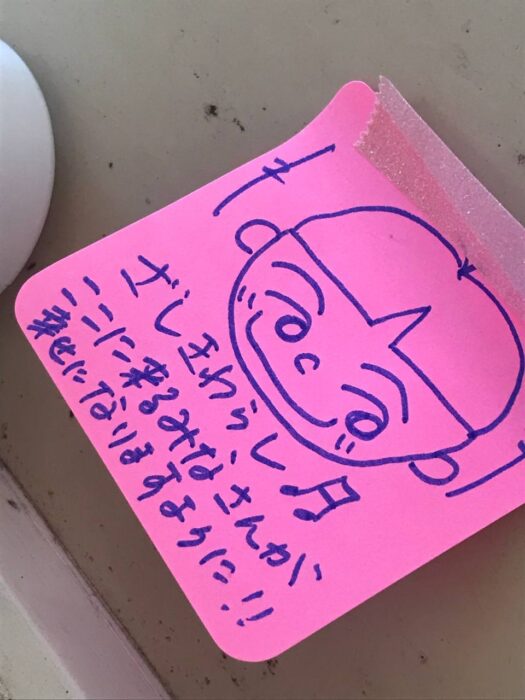 ざしきわらし♫
ここに来るみなさんが
幸せになりますように!!